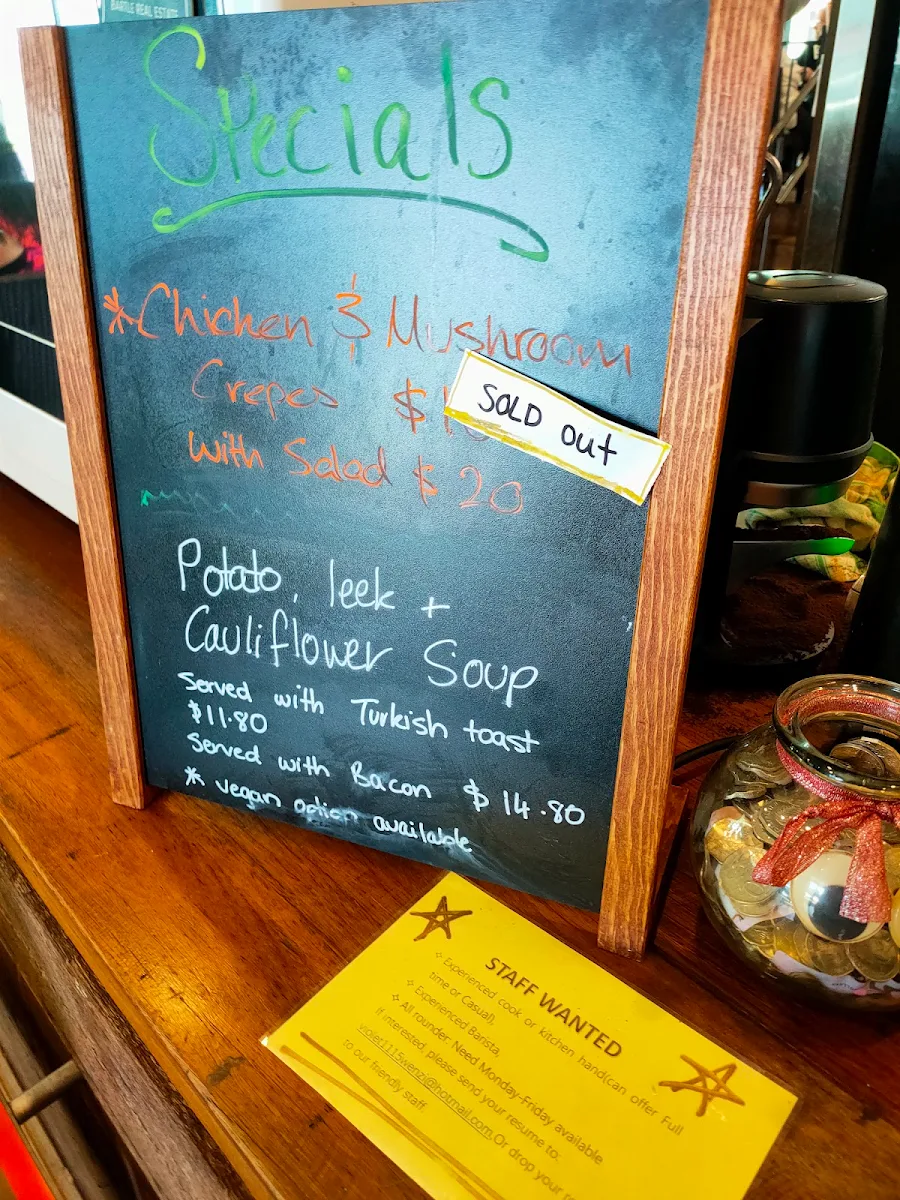 BARTLE REAL ESTATE
Specials
*Chicken & Mushroom
Crepes $1
SOLD out
with Salad $20
Potato, leek +
Cauliflower Soup
Served with Turkish toast
$11.80
Served with Bacon $14.80
* vegan option available
STAFF WANTED
Experienced cook or kitchen hand(can offer Full
time or Casual),
Experienced Barista,
All rounder Need Monday-Friday available
If interested, please send your resume to:
violet1115wenzi@hotmail.com.Or drop your
to our friendly staff.